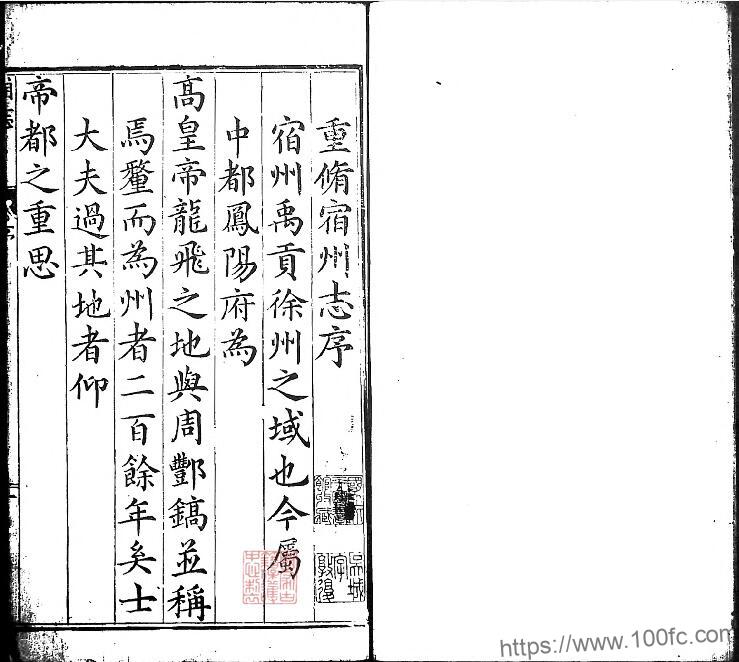 重脩宿州志序
宿州禹貢徐州之域也今屬
中都鳳陽府為
高皇帝龍飛之地與周酆鎬並稱
焉釐而為州者二百餘年矣士
大夫過其地者仰
帝都之重思
吳城
字
敦復
https://www.100fc.com